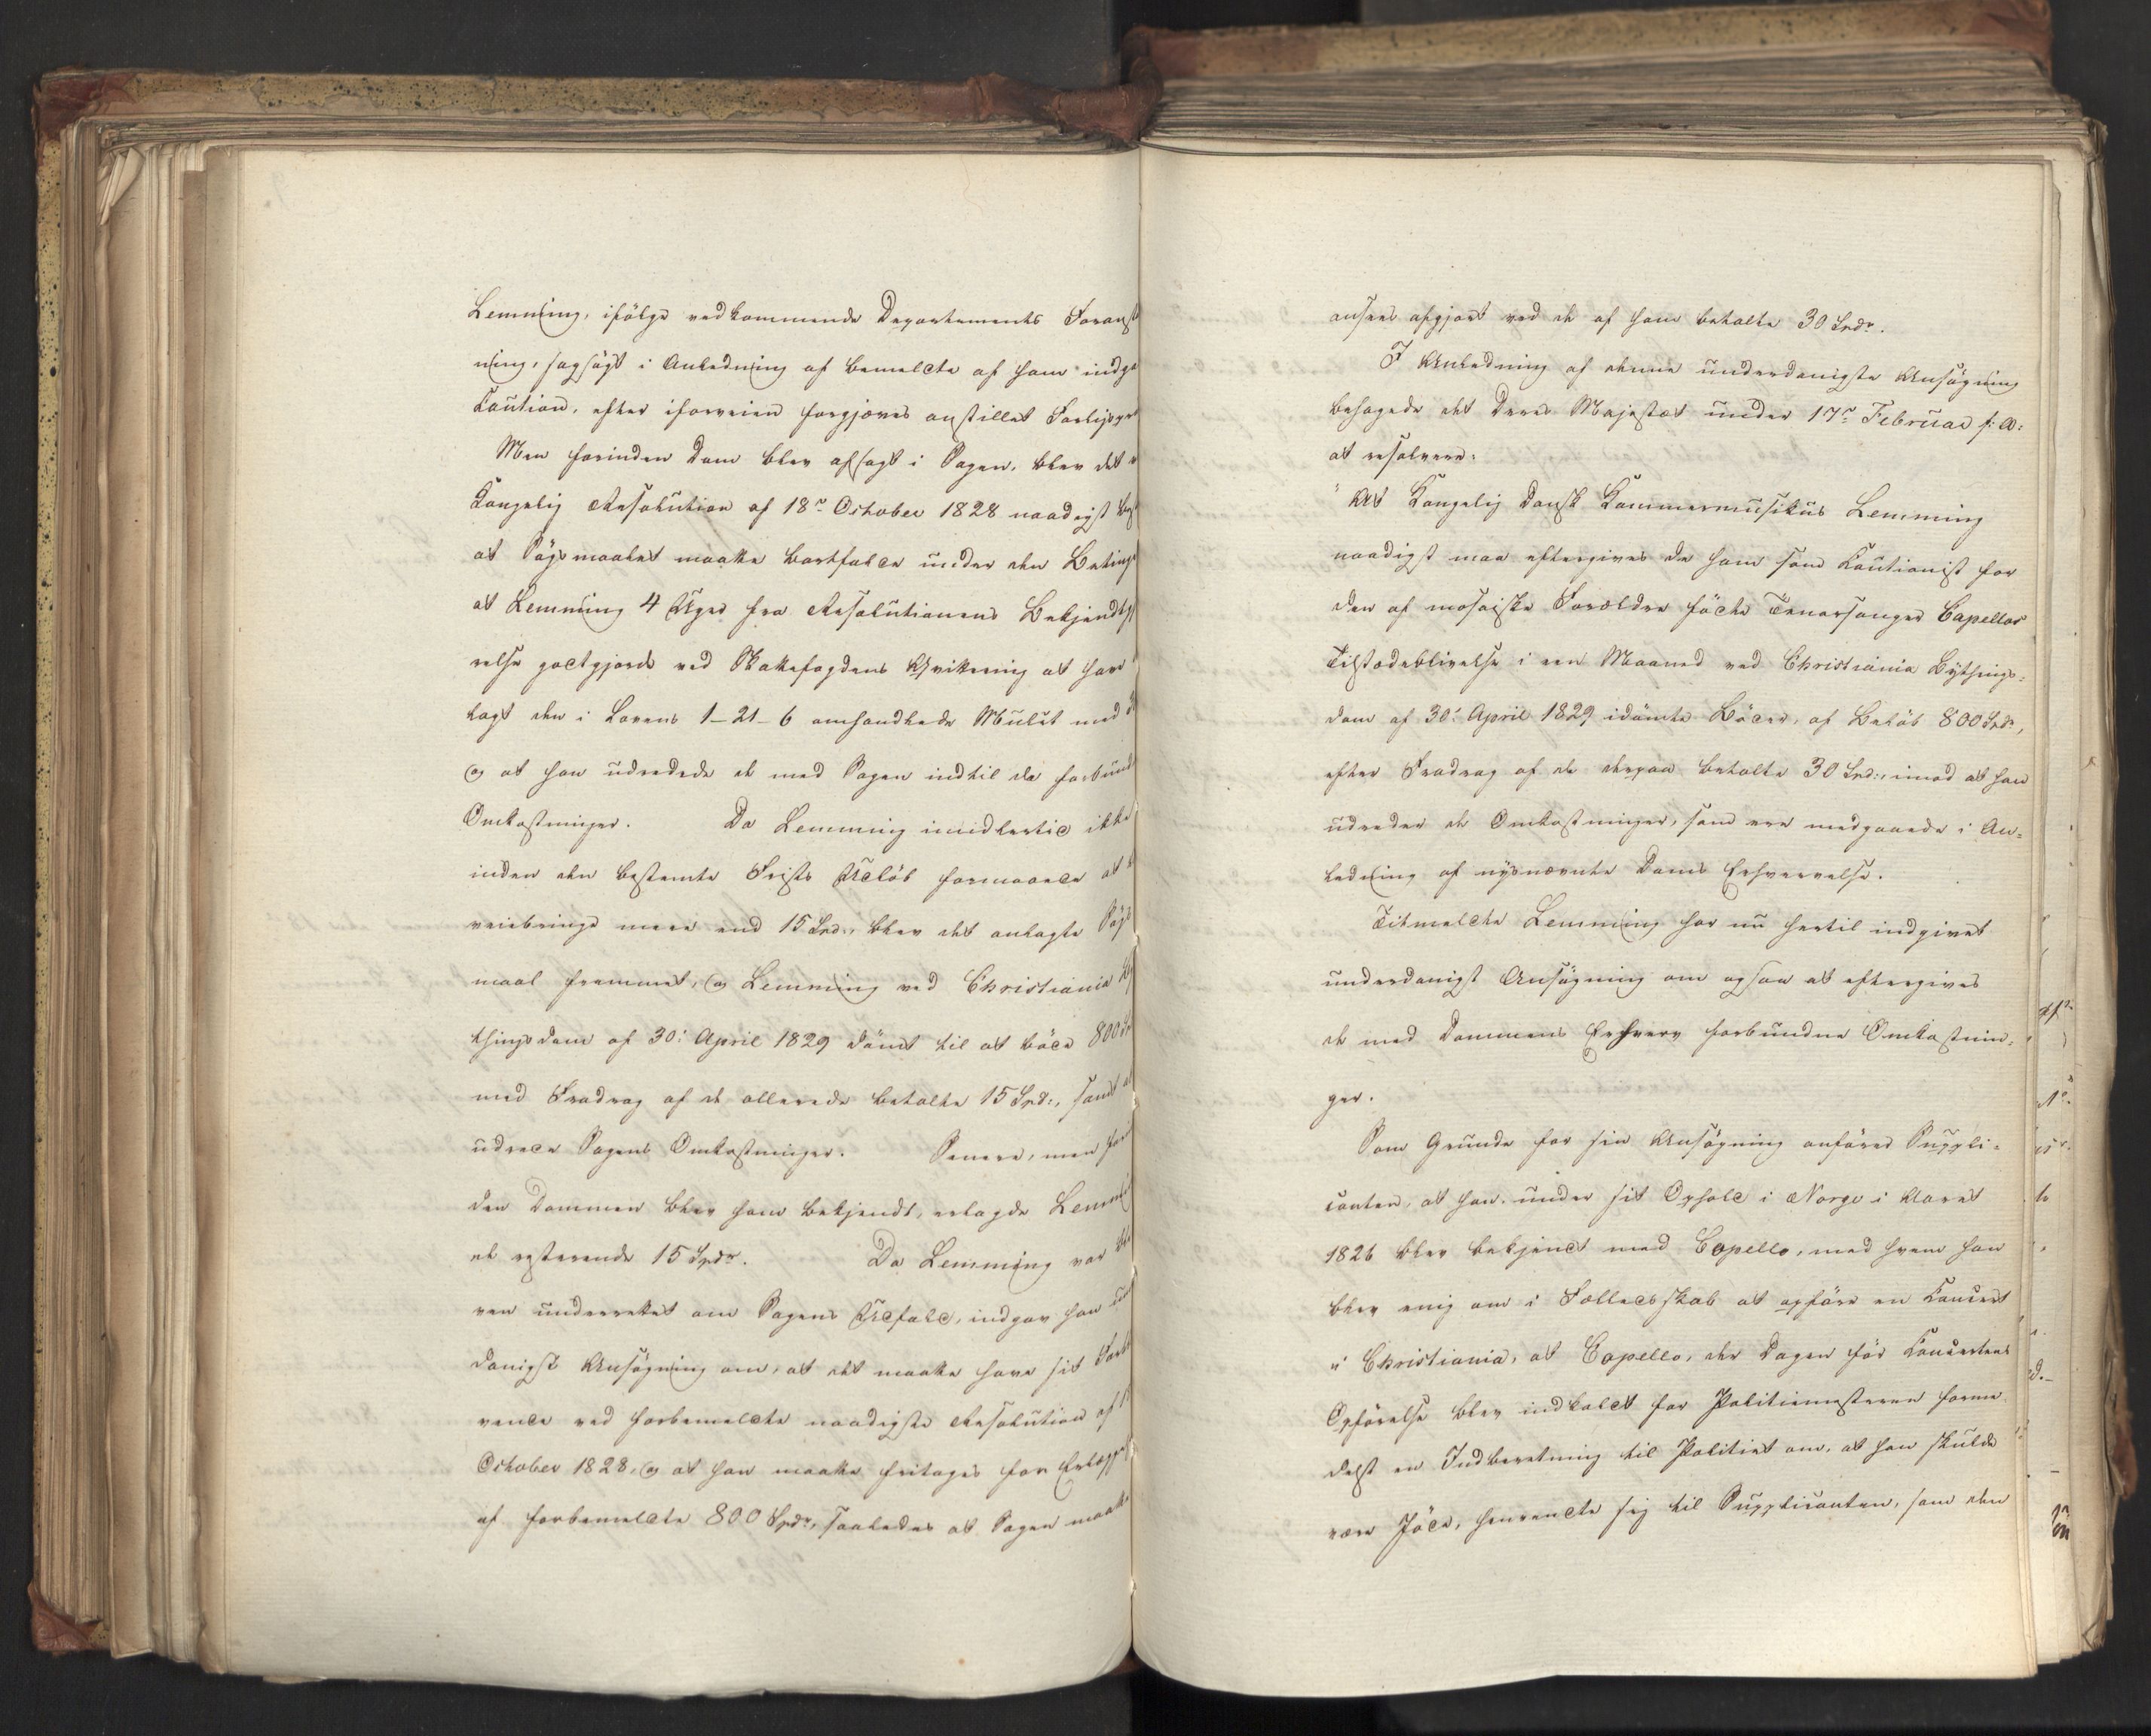 Lemming, ifölge vedkommende Departements Foranst
ning, sagsögt i Anledning af bemeldte af ham indga
Caution, efter iforveien forgjæves anstillet Forligspr
Men forinden Dom blev afsagt i Sagen, blev det v
Kongelig Resolution af 18de October 1828 naadigst
at Sögsmaalet maatte bortfalde under den Beting
at Lemming 4 Uger fra Resolutionens Bekjendtgj
relse godtgjorde ved Skattefogdens Qvittering at have
lagt den i Lovens 1-21-6 omhandlede Mulct med
og at han udredede de med Sagen indtil da forbund
Omkostninger. Da Lemming imidlertid ikke
inden den bestemte Frists Udløb formaaede at
veiebringe mere end 15 Spd:, blev det anlagte Sögs
maal fremmet, og Lemming ved Christiania By
thingsdom af 30: April 1829 dömt til at böde 800 Sp
med Fradrag af de allerede betalte 15 Spd:, samt at
udrede Sagens Omkostninger. Senere, men fori
den Dommen blev ham bekjendt, erlagde Lemmi
de resterende 15 Spdr. Da Lemming var ble
ven underrettet om Sagens Udfald, indgav han un
danigst Ansögning om, at det maatte have sit Forbl
vende ved forbemeldte naadigste Resolution af 1
October 1828, og at han maatte fritages for Erlægg
af forbemeldte 800 Spdr, saaledes at Sagen maatte
ansees afgjort ved de af ham betalte 30 Spdr.
I Anledning af denne underdanigste Ansögning
behagede det Deres Majestæt under 17de Februar f: A:
at resolvere:
"At Kongelig Dansk Kammermusikus Lemming
naadigst maa eftergives de ham som Cautionist for
den af mosaiske Forældre fødte Tenorsanger Capellos
Tilstedeblivelse i een Maaned ved Christiania Bythings=
dom af 30: April 1829 idömte Böder, af Belöb 800 Spd:,
efter Fradrag af de derpaa betalte 30 Spd:, imod at han
udreder de Omkostninger, som ere medgaaede i An=
ledning af nysnævnte Doms Erhvervelse.
Titmeldte Lemming har nu hertil indgivet
underdanigst Ansögning om ogsaa at eftergives
de med Dommens Erhverv forbundne Omkostnin=
ger.
Som Grunde for sin Ansögning anförer Suppli=
canten, at han under sit Ophold i Norge i Aaret
1826 blev bekjendt med Capello, med hvem han
blev enig om i Fælledsskab at opföre en Concert
i Christiania, at Capello, der Dagen för Concertens
Opförelse blev indkaldt for Politiemesteren forme
delst en Indberetning til Politiet om, at han skulde
være Jöde, henvendte sig til Supplicanten, som den